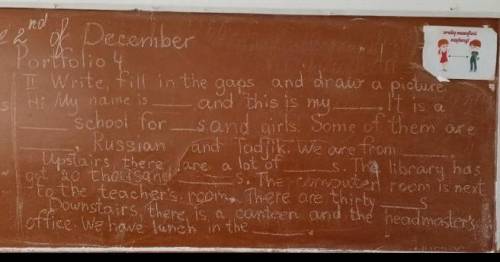 2nd of December
Portfolio 4
II Write, fill in the gaps and draw a picture
Hi My name is ___ and this is my ____. It is a
_____ school for ___s and girls. Some of them are
_____, Russian and Tadjik. We are from _____.
Upstairs, there are a lot of ____s. The library has
got 20 thousand _____s. The computer room is next
to the teacher's room. There are thirty ____s
Downstairs, there, is a canteen and the headmaster's
office. We have lunch in the _____.